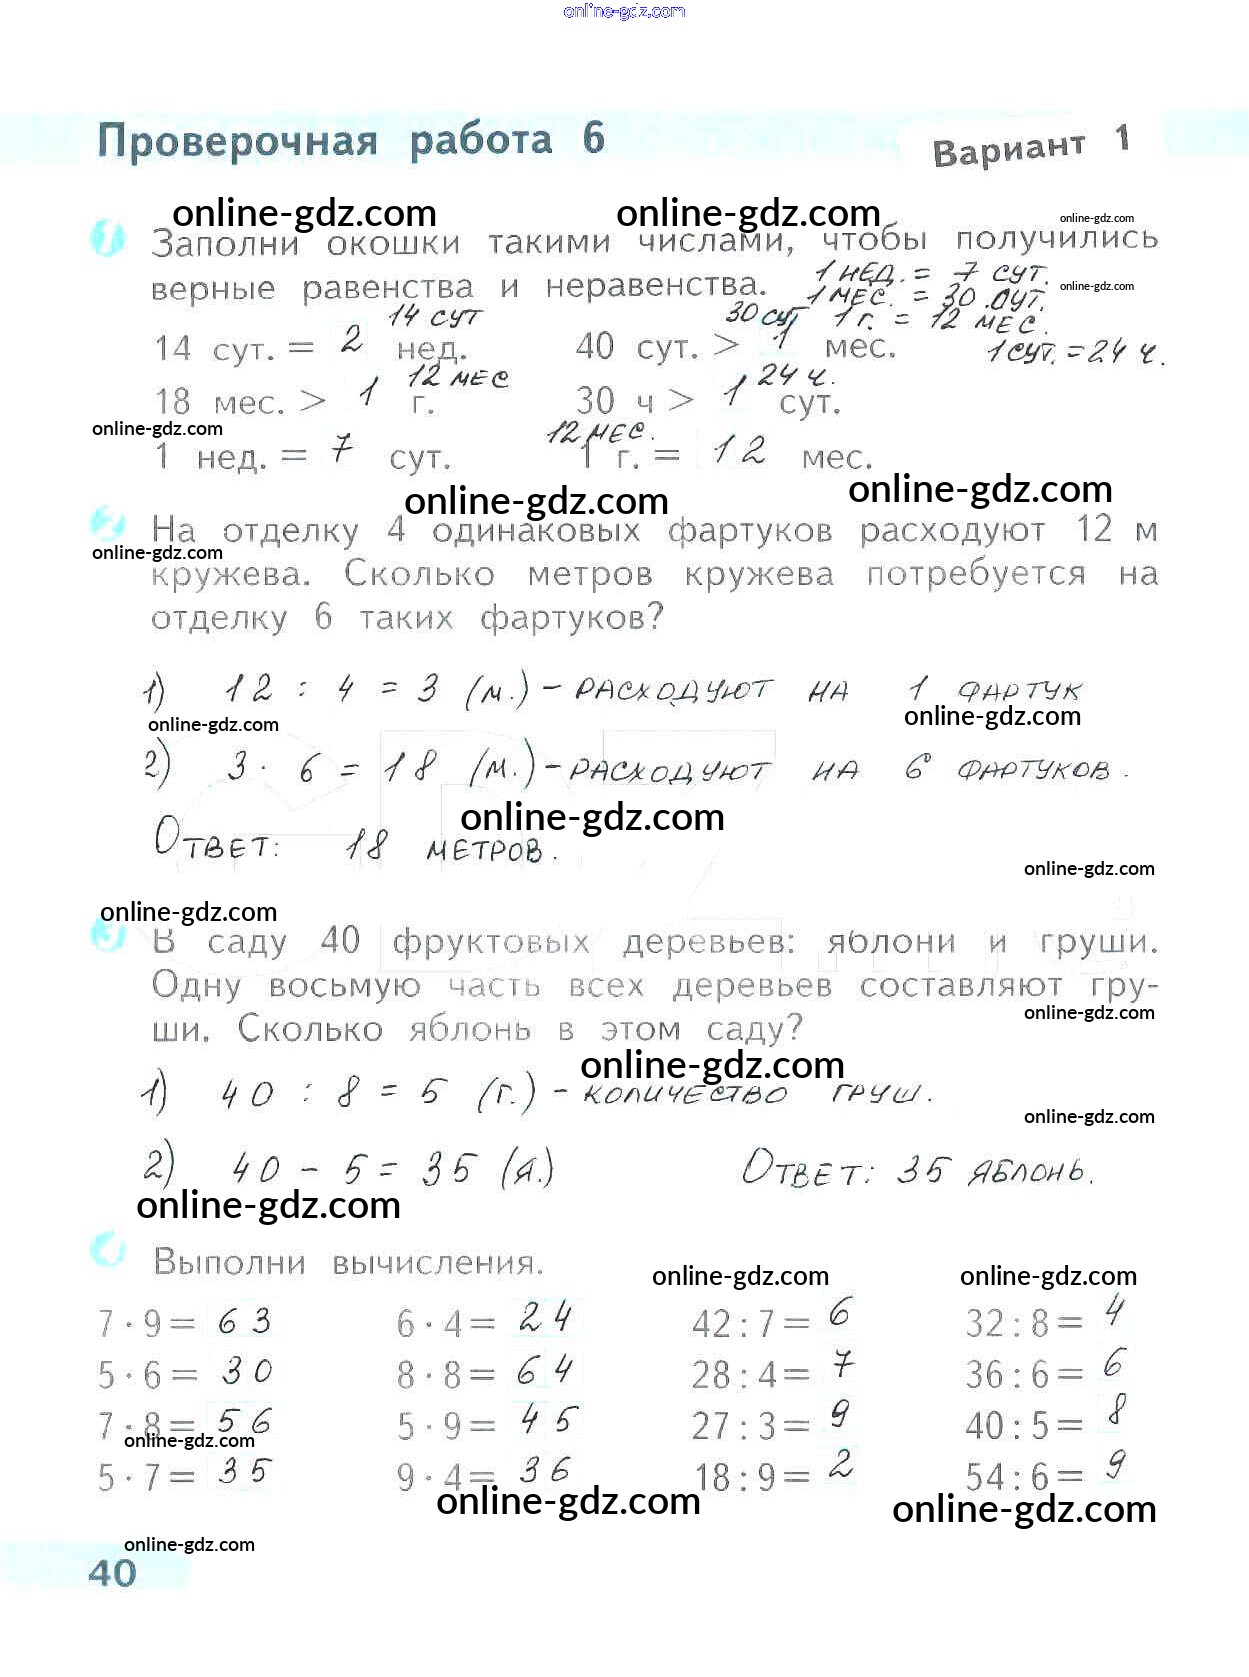 online-gdz.com
Проверочная работа 6
Вариант 1
online-gdz.com online-gdz.com online-gdz.com
1 Заполни окошки такими числами, чтобы получились
верные равенства и неравенства. 1 нед. = 7 сут.
online-gdz.com
1 мес. = 30 сут.
14 сут 30 сут 1 г. = 12 мес.
14 сут. = 2 нед. 40 сут. > 1 мес. 1 сут. = 24 ч.
12 мес 24 ч.
18 мес. > 1 г. 30 ч > 1 сут.
online-gdz.com 12 мес.
1 нед. = 7 сут. 1 г. = 12 мес.
online-gdz.com online-gdz.com
2 На отделку 4 одинаковых фартуков расходуют 12 м
online-gdz.com
кружева. Сколько метров кружева потребуется на
отделку 6 таких фартуков?
1) 12 : 4 = 3 (м.) – расходуют на 1 фартук
online-gdz.com online-gdz.com
2) 3 · 6 = 18 (м.) – расходуют на 6 фартуков.
online-gdz.com
Ответ: 18 метров.
online-gdz.com
online-gdz.com
3 В саду 40 фруктовых деревьев: яблони и груши.
Одну восьмую часть всех деревьев составляют гру-
online-gdz.com
ши. Сколько яблонь в этом саду?
online-gdz.com
1) 40 : 8 = 5 (г.) – количество груш.
online-gdz.com
2) 40 – 5 = 35 (я.) Ответ: 35 яблонь.
online-gdz.com
4 Выполни вычисления.
online-gdz.com online-gdz.com
7 · 9 = 63 6 · 4 = 24 42 : 7 = 6 32 : 8 = 4
5 · 6 = 30 8 · 8 = 64 28 : 4 = 7 36 : 6 = 6
7 · 8 = 56 5 · 9 = 45 27 : 3 = 9 40 : 5 = 8
online-gdz.com
5 · 7 = 35 9 · 4 = 36 18 : 9 = 2 54 : 6 = 9
online-gdz.com online-gdz.com
online-gdz.com
40